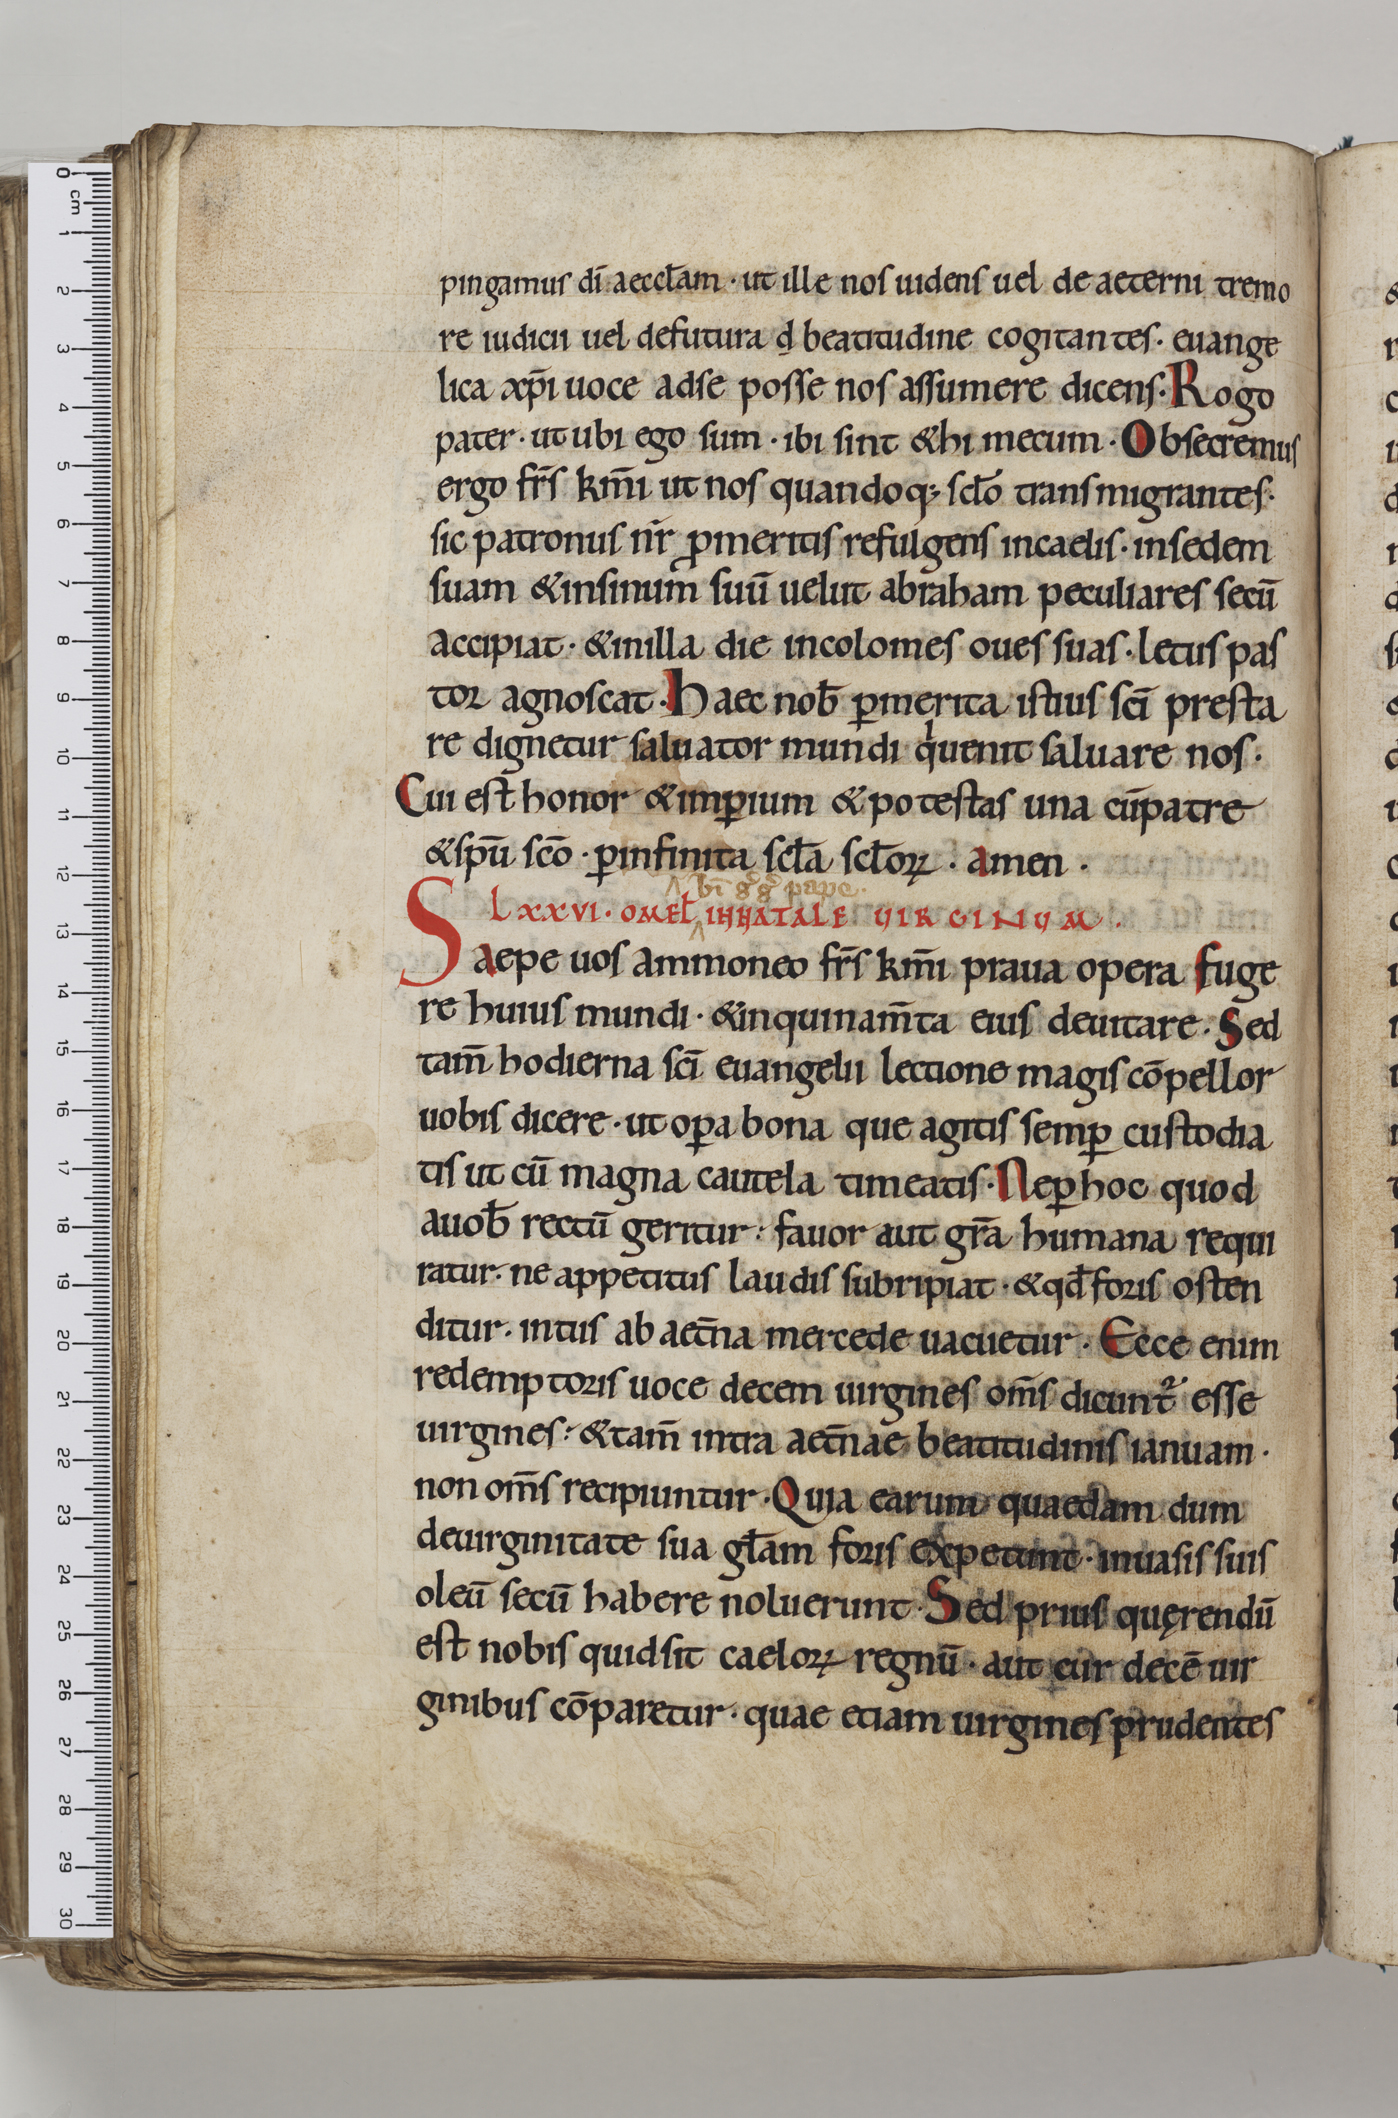 pingamus dī aeccłam · ut ille nos uidens uel de aeterni tremo
re iudicii uel defutura đ beatitudine cogitantes · euange
lica xp̄i uoce adse posse nos assumere dicens · Rogo
pater · ut ubi ego sum · ibi sint &hi mecum · Obsecremus
ergo fr̄s km̄i ut nos quandoq; scło transmigrantes ·
sic patronus nr̄ ꝓmeritis refulgens incaelis · insedem
suam &insinum suū uelut abraham peculiares secū
accipiat · &inilla die incolomes oues suas · letus pas
tor agnoscat · Haec nob̄ ꝑmerita istius scī presta
re dignetur saluator mundi qͥuenit saluare nos ·
Cui est honor &imꝑium &potestas una cūpatre
&spū scō · ꝑinfinita scła scłoꝝ · amen ·
bī gͦgͦ pape ·
LXXVI · OMEŁ INNATALE VIRGINVM ·
Saepe uos ammoneo fr̄s km̄i praua opera fuge
re huius mundi · &inquinam̄ta eius deuitare · Sed
tam̄ hodierna scī euangelii lectione magis cōpellor
uobis dicere · ut oꝑa bona que agitis semꝑ custodia
tis ut cū magna cautela timeatis · Neꝑ hoc quod
auob̄ rectū geritur : fauor aut gr̄a humana requi
ratur · ne appetitus laudis subripiat · &qđ foris osten
ditur · intus ab aet̄na mercede uacuetur · Ecce enim
redemptoris uoce decem uirgines om̄s dicunt᷑ esse
uirgines : &tam̄ intra aet̄nae beatitudinis ianuam ·
non om̄s recipiuntur · Quia earum quaedam dum
deuirginitate sua głam foris expetunt · inuasis suis
oleū secū habere noluerunt · Sed prius quęrendū
est nobis quidsit caeloꝝ regnū · aut cur decē uir
ginibus cōparetur · quae etiam uirgines prudentes
0 cm
1
2
3
4
5
6
7
8
9
10
11
12
13
14
15
16
17
18
19
20
21
22
23
24
25
26
27
28
29
30